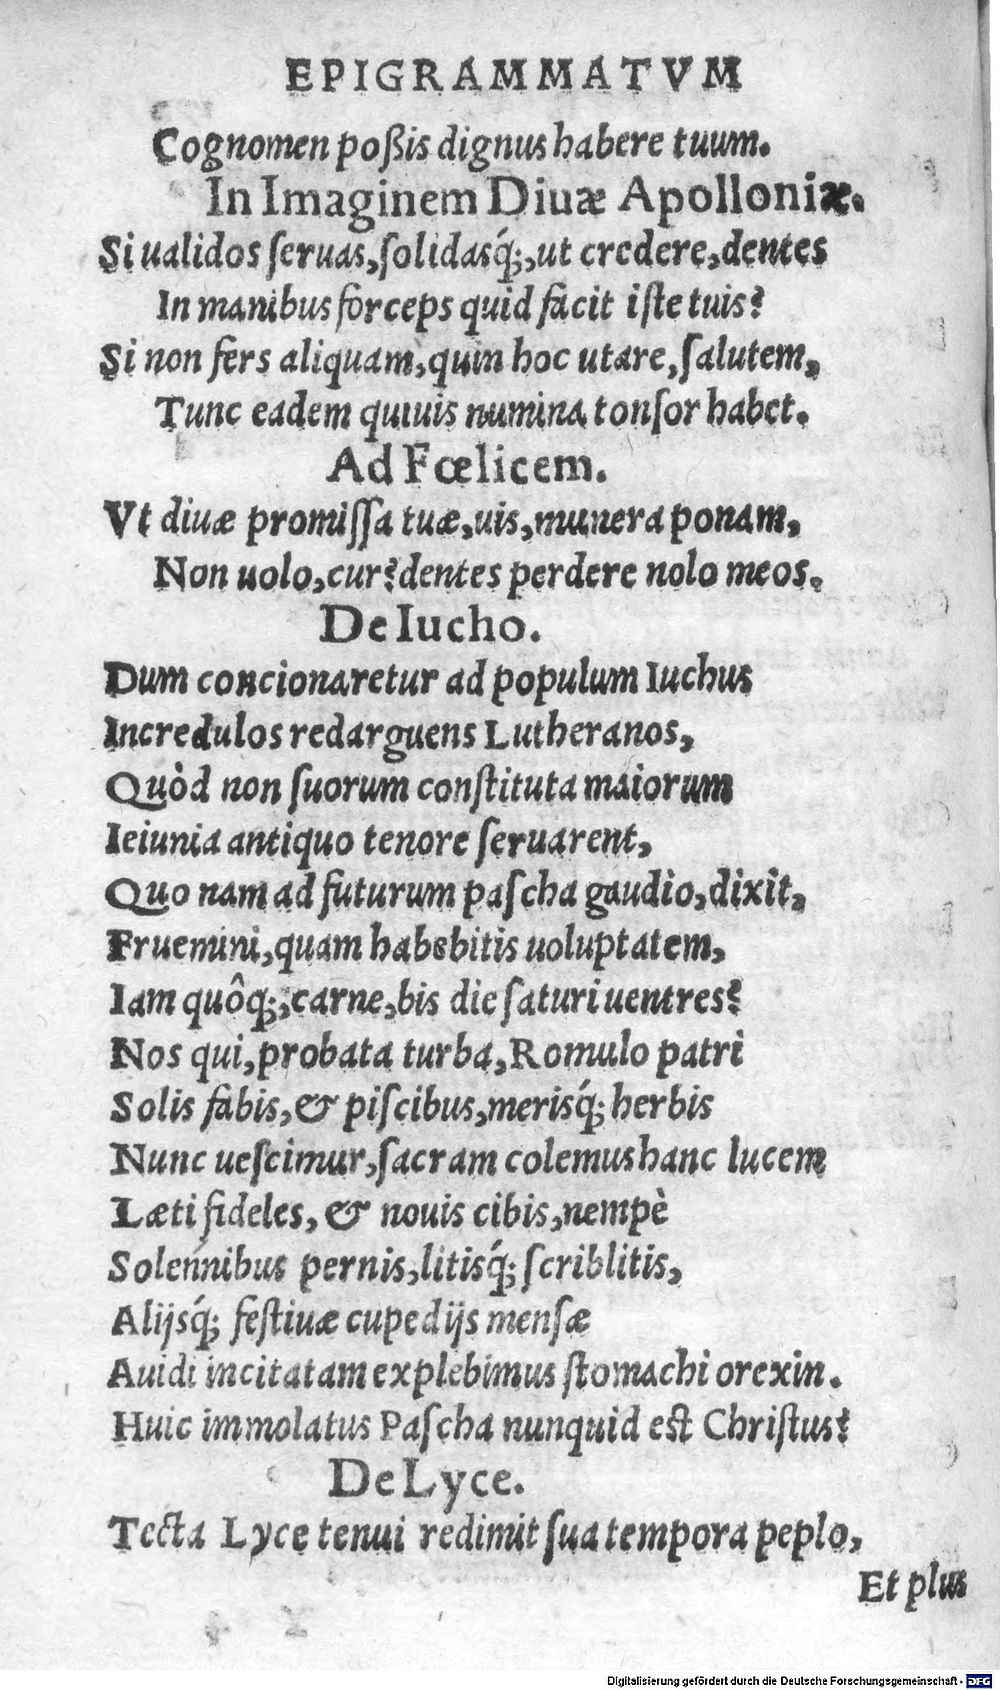 EPIGRAMMATVM
Cognomen poßis dignus habere tuum.
In Imaginem Diuæ Apolloniæ.
Si ualidos ſeruas,ſolidasq́;,ut credere,dentes
In manibus forceps quid facit iſte tuis?
Si non fers aliquam,quin hoc utare,ſalutem,
Tunc eadem quiuis numina tonſor habet.
Ad Fœlicem.
Vt diuæ promiſſa tuæ,uis,munera ponam,
Non uolo,cur?dentes perdere nolo meos.
De Iucho.
Dum concionaretur ad populum Iuchus
Incredulos redarguens Lutheranos,
Quòd non ſuorum conſtituta maiorum
Ieiunia antiquo tenore ſeruarent,
Quo nam ad futurum paſcha gaudio,dixit,
Fruemini,quam habebitis uoluptatem,
Iam quôq;,carne,bis die ſaturi uentres?
Nos qui,probata turba,Romulo patri
Solis fabis,& piſcibus,merisq́; herbis
Nunc ueſcimur,ſacram colemus hanc lucem
Læti fideles,& nouis cibis,nempè
Solennibus pernis,litisq́; ſcriblitis,
Alijsq́; feſtiuæ cupedijs menſæ
Auidi incitatam explebimus ſtomachi orexin.
Huic immolatus Paſcha nunquid eſt Chriſtus?
De Lyce.
Tecta Lyce tenui redimit ſua tempora peplo,
Et plus
Digitalisierung gefördert durch die Deutsche Forschungsgemeinschaft - DFG